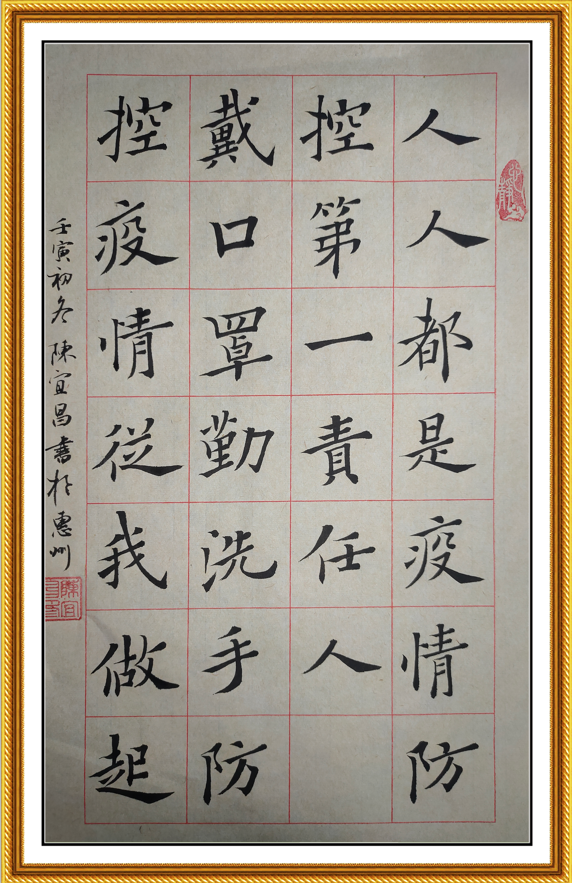 人人都是疫情防
控第一責任人
戴口罩勤洗手防
控疫情從我做起
壬寅初冬陳宜昌書於惠州